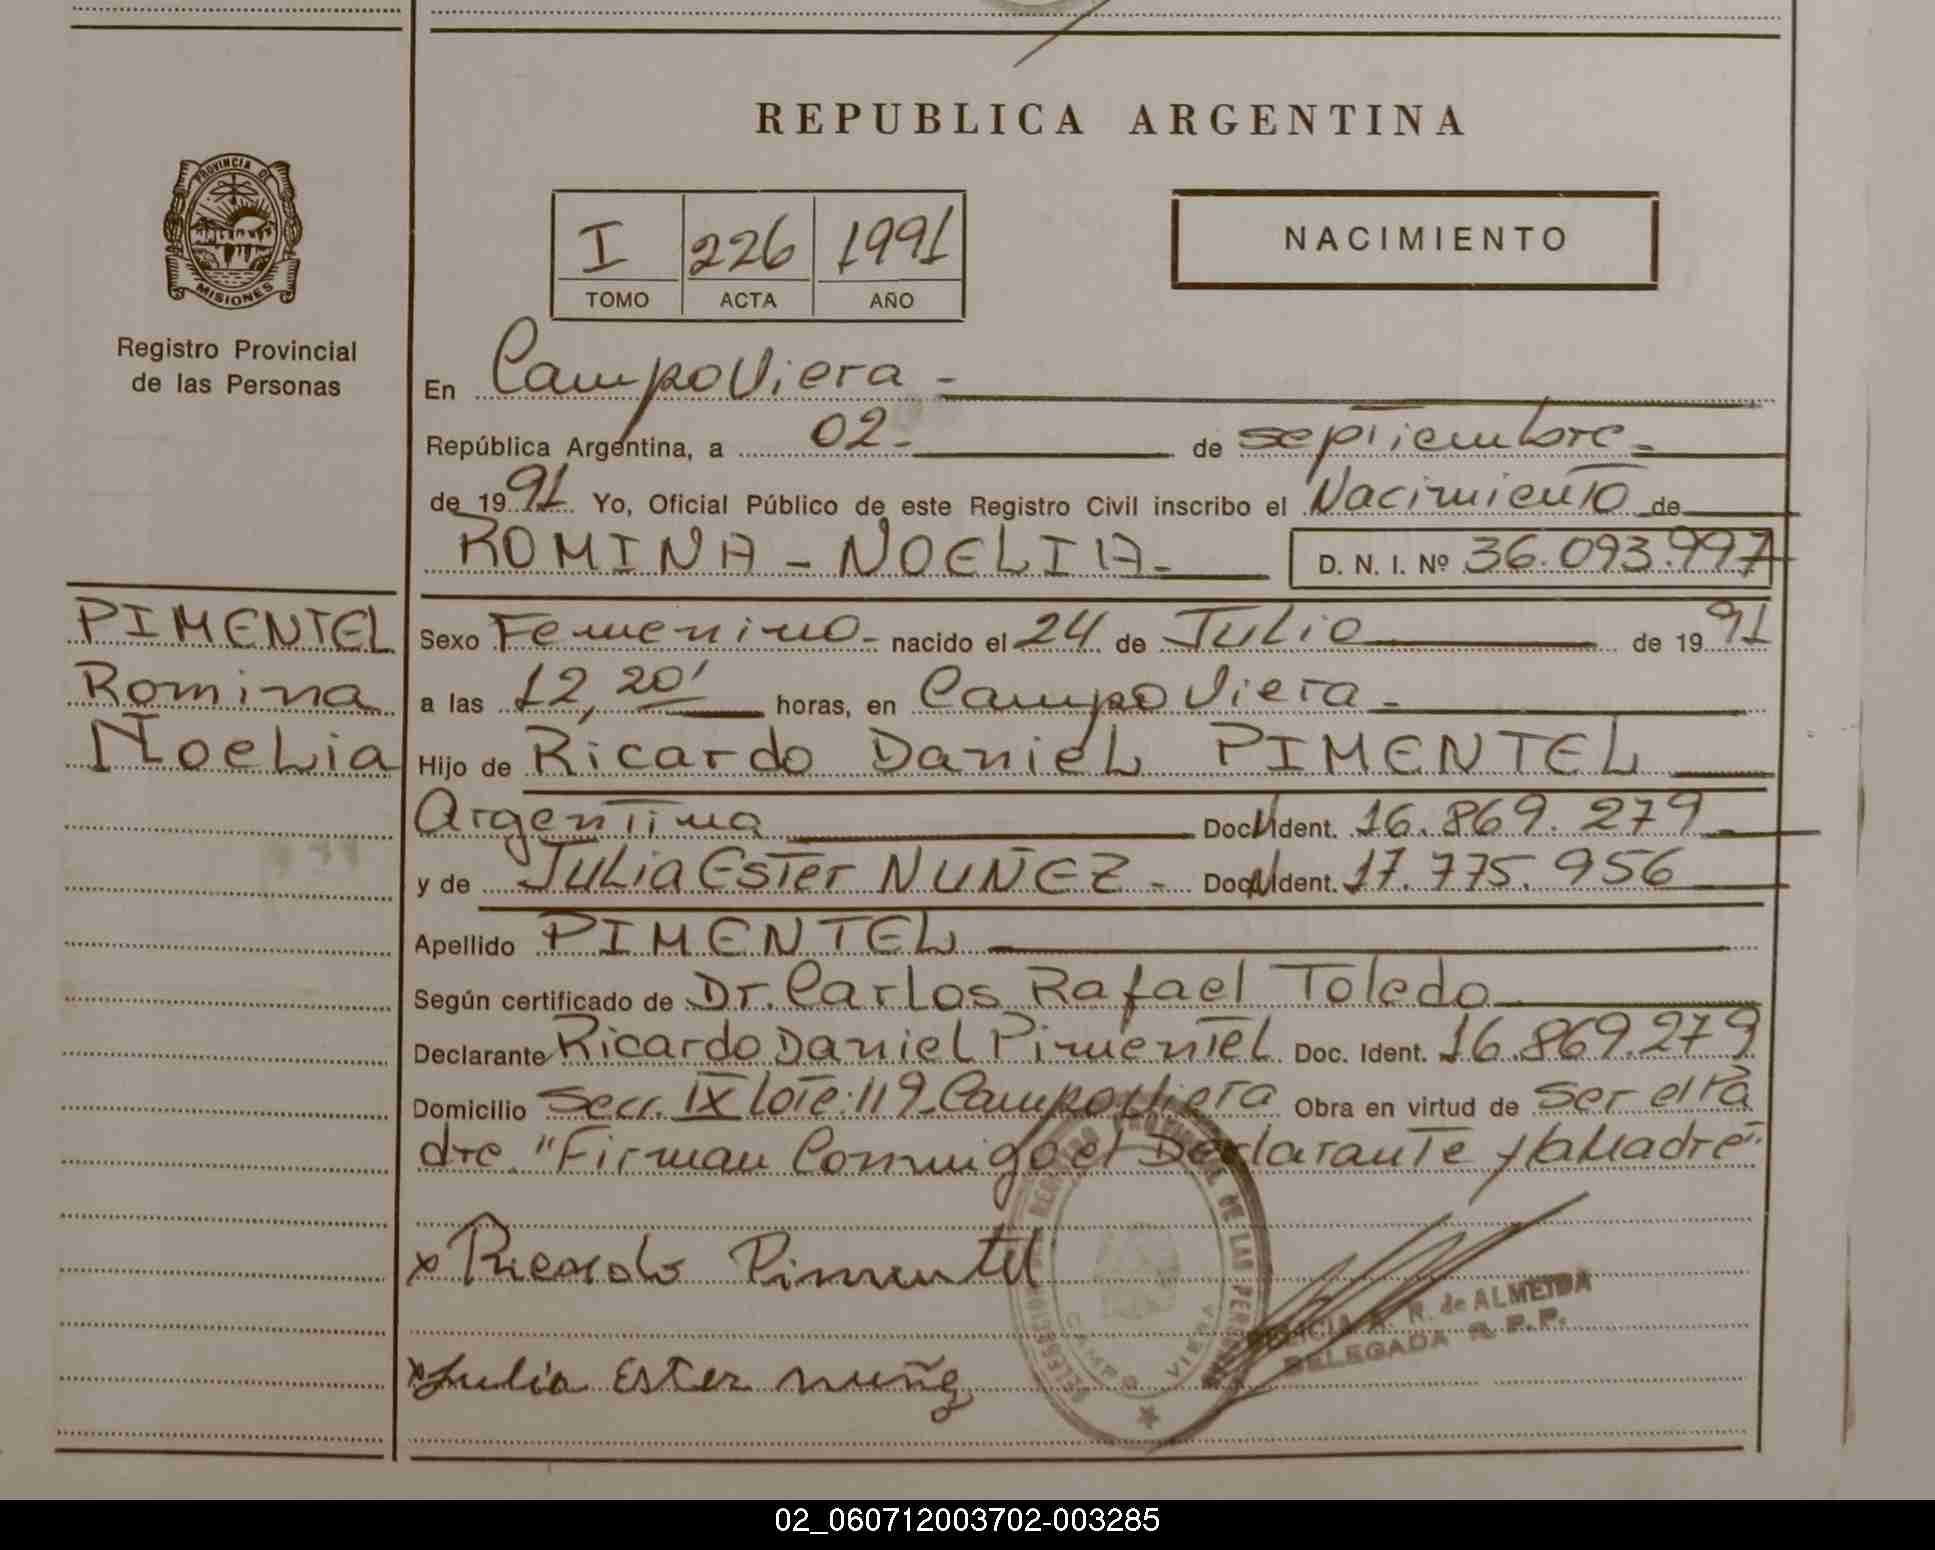 REPUBLICA ARGENTINA
PROVINCIA DE
MISIONES
Registro Provincial
de las Personas
I 226 1991
TOMO ACTA AÑO
NACIMIENTO
En Campo Viera -
República Argentina, a 02- de septiembre-
de 1991 Yo, Oficial Público de este Registro Civil inscribo el Nacimiento de
ROMINA - NOELIA- D. N. I. Nº 36.093.997
PIMENTEL
Romina
Noelia
Sexo Femenino- nacido el 24 de Julio de 1991
a las 12,20' horas, en Campo Viera-
Hijo de Ricardo Daniel PIMENTEL
Argentina Doc. Ident. 16.869.279
y de Julia Ester NUÑEZ - Doc. Ident. 17.775.956
Apellido PIMENTEL
Según certificado de Dr. Carlos Rafael Toledo
Declarante Ricardo Daniel Pimentel Doc. Ident. 16.869.279
Domicilio Secc. IX lote:119-Campo Viera Obra en virtud de ser el Pa
dre. "Firman Conmigo el Declarante y la Madre".
x Ricardo Pimentel
x Julia Ester nuñez
CAMPO VIERA
R. de ALMEIDA
DELEGADA R. P. P.
02_060712003702-003285